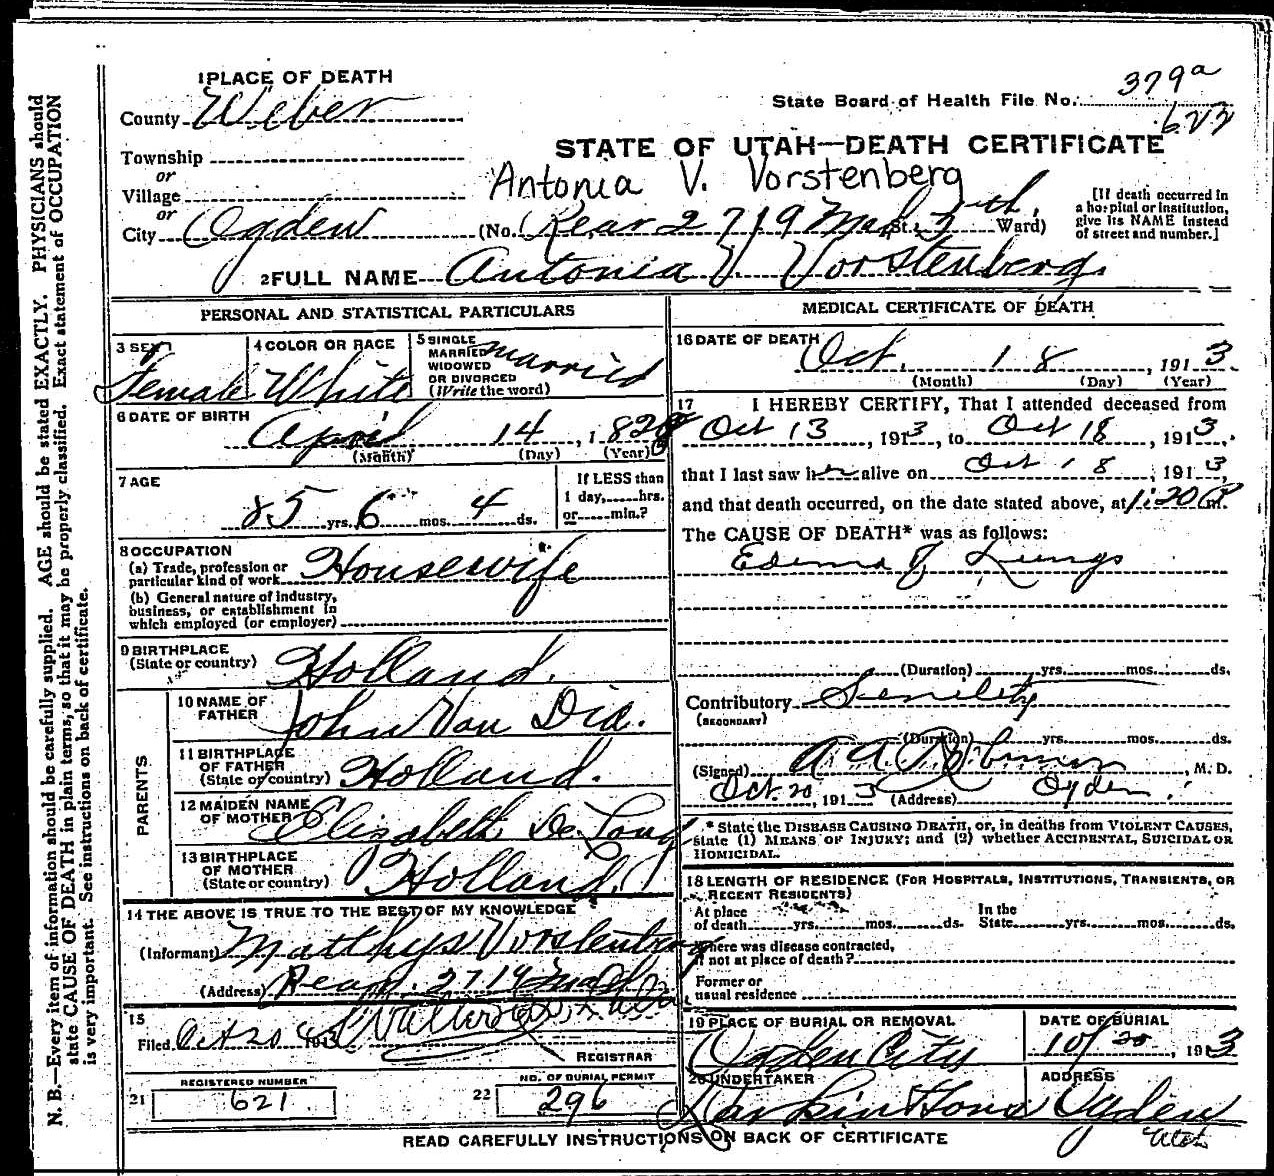 N. B.—Every item of information should be carefully supplied. AGE should be stated EXACTLY. PHYSICIANS should
state CAUSE OF DEATH in plain terms, so that it may be properly classified. Exact statement of OCCUPATION
is very important. See instructions on back of certificate.
1 PLACE OF DEATH
County Weber
State Board of Health File No. 379a
622
STATE OF UTAH—DEATH CERTIFICATE
Township
or
Village
or
Antonia V. Vorstenberg
City Ogden (No. Rear 2719 St.; 5th Ward)
[If death occurred in
a hospital or institution,
give its NAME instead
of street and number.]
2 FULL NAME Antonia V. Vorstenberg
PERSONAL AND STATISTICAL PARTICULARS
3 SEX Female
4 COLOR OR RACE White
5 SINGLE
MARRIED
WIDOWED
OR DIVORCED
(Write the word) married
6 DATE OF BIRTH
April 14, 1828
(Month) (Day) (Year)
7 AGE
85 yrs. 6 mos. 4 ds.
If LESS than
1 day, hrs.
or min.?
8 OCCUPATION
(a) Trade, profession or
particular kind of work Housewife
(b) General nature of industry,
business, or establishment in
which employed (or employer)
9 BIRTHPLACE
(State or country) Holland.
PARENTS
10 NAME OF
FATHER John Van Die.
11 BIRTHPLACE
OF FATHER
(State or country) Holland.
12 MAIDEN NAME
OF MOTHER Elisabeth De Long
13 BIRTHPLACE
OF MOTHER
(State or country) Holland.
14 THE ABOVE IS TRUE TO THE BEST OF MY KNOWLEDGE
(Informant) Matthys Vorstenberg
(Address) Rear. 2719
15
Filed Oct 20 1913
REGISTRAR
REGISTERED NUMBER
21 621
NO. OF BURIAL PERMIT
22 296
MEDICAL CERTIFICATE OF DEATH
16 DATE OF DEATH
Oct. 18, 1913
(Month) (Day) (Year)
17 I HEREBY CERTIFY, That I attended deceased from
Oct 13, 1913, to Oct 18, 1913,
that I last saw her alive on Oct 18, 1913,
and that death occurred, on the date stated above, at 1:20 P m.
The CAUSE OF DEATH* was as follows:
Edema of Lungs
(Duration) yrs. mos. ds.
Contributory Senility
(SECONDARY)
(Duration) yrs. mos. ds.
(Signed) A. A. Robinson, M. D.
Oct. 20, 1913 (Address) Ogden.
* State the DISEASE CAUSING DEATH, or, in deaths from VIOLENT CAUSES,
state (1) MEANS OF INJURY; and (2) whether ACCIDENTAL, SUICIDAL OR
HOMICIDAL.
18 LENGTH OF RESIDENCE (FOR HOSPITALS, INSTITUTIONS, TRANSIENTS, OR
RECENT RESIDENTS)
At place
of death yrs. mos. ds.
In the
State yrs. mos. ds.
Where was disease contracted,
if not at place of death?
Former or
usual residence
19 PLACE OF BURIAL OR REMOVAL
Ogden City
DATE OF BURIAL
10/20, 1913
20 UNDERTAKER
Larkin & Sons
ADDRESS
Ogden
Utah
READ CAREFULLY INSTRUCTIONS ON BACK OF CERTIFICATE